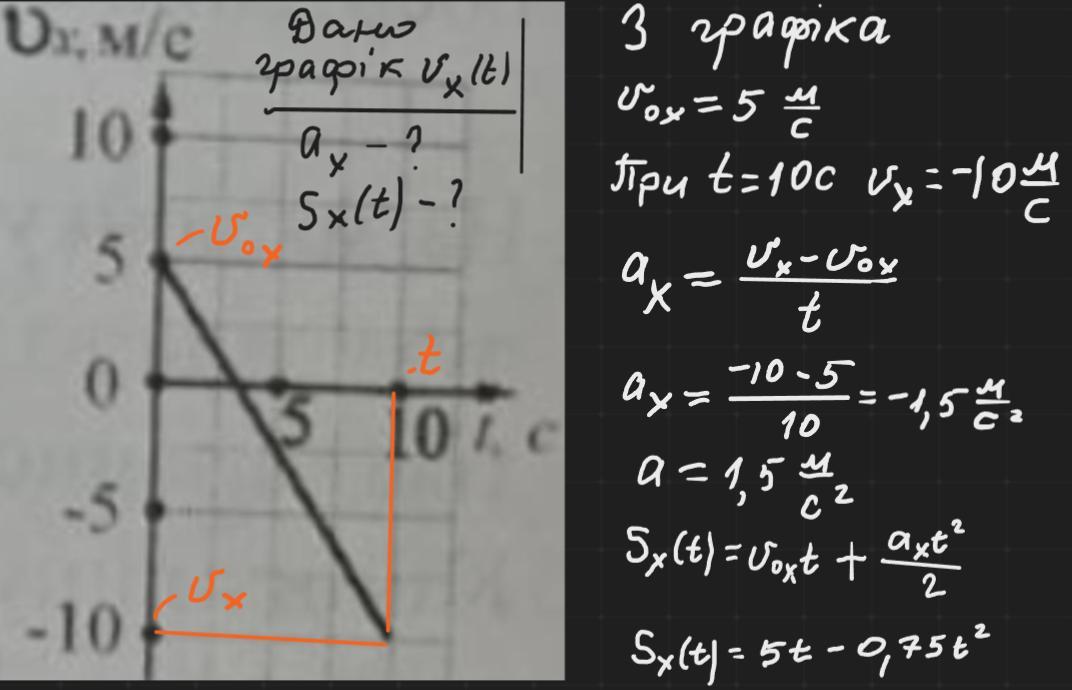 υx, м/с
10
5
0
-5
-10
5
10
t, с
Дано
графік υx(t)
ax - ?
Sx(t) - ?
υox
t
υx
З графіка
υox = 5 м/с
При t=10с υx = -10 м/с
ax = (υx - υox)/t
ax = (-10 - 5)/10 = -1,5 м/с²
a = 1,5 м/с²
Sx(t) = υoxt + axt²/2
Sx(t) = 5t - 0,75t²